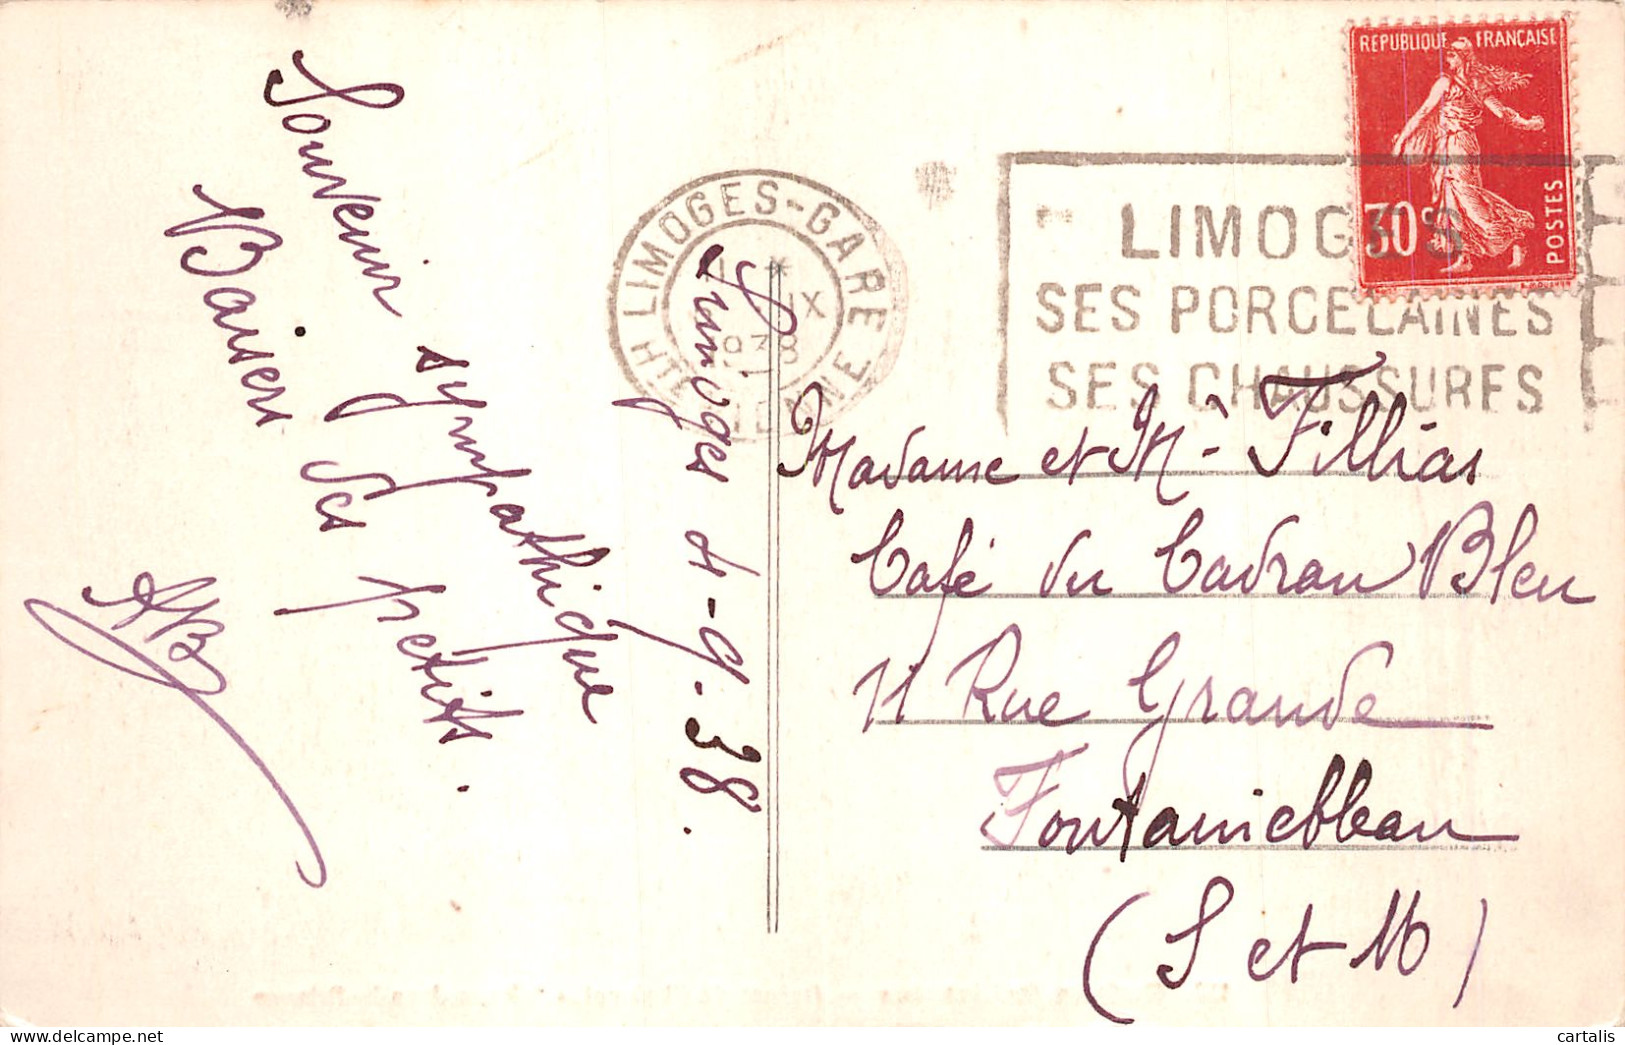 Limoges 4-9-38.
Souvenir sympathique
Baisers des petits.
AB
LIMOGES-GARE
* IX
1938
HTE VIENNE
LIMOGES
SES PORCELAINES
SES CHAUSSURES
REPUBLIQUE FRANÇAISE
30c
POSTES
Madame et Mr Fillias
Café du Cadran Bleu
11 Rue Grande
Fontainebleau
(S et M)
cartalis